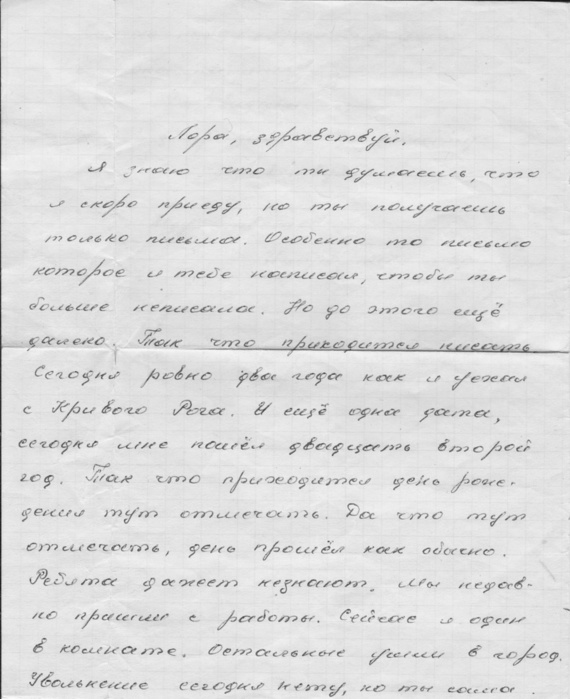 Лора, здравствуй.
Я знаю что ты думаешь, что
я скоро приеду, но ты получаешь
только письма. Особенно то письмо
которое я тебе написал, чтобы ты
больше неписала. Но до этого ещё
далеко. Так что приходится писать
Сегодня ровно два года как я уехал
с Кривого Рога. И ещё одна дата,
сегодня мне пошёл двадцать второй
год. Так что приходится день рож-
дения тут отмечать. Да что тут
отмечать, день прошёл как обычно.
Ребята даже незнают. Мы недав-
но пришли с работы. Сейчас я один
в комнате. Остальные ушли в город.
Увольнение сегодня нету, но ты сама